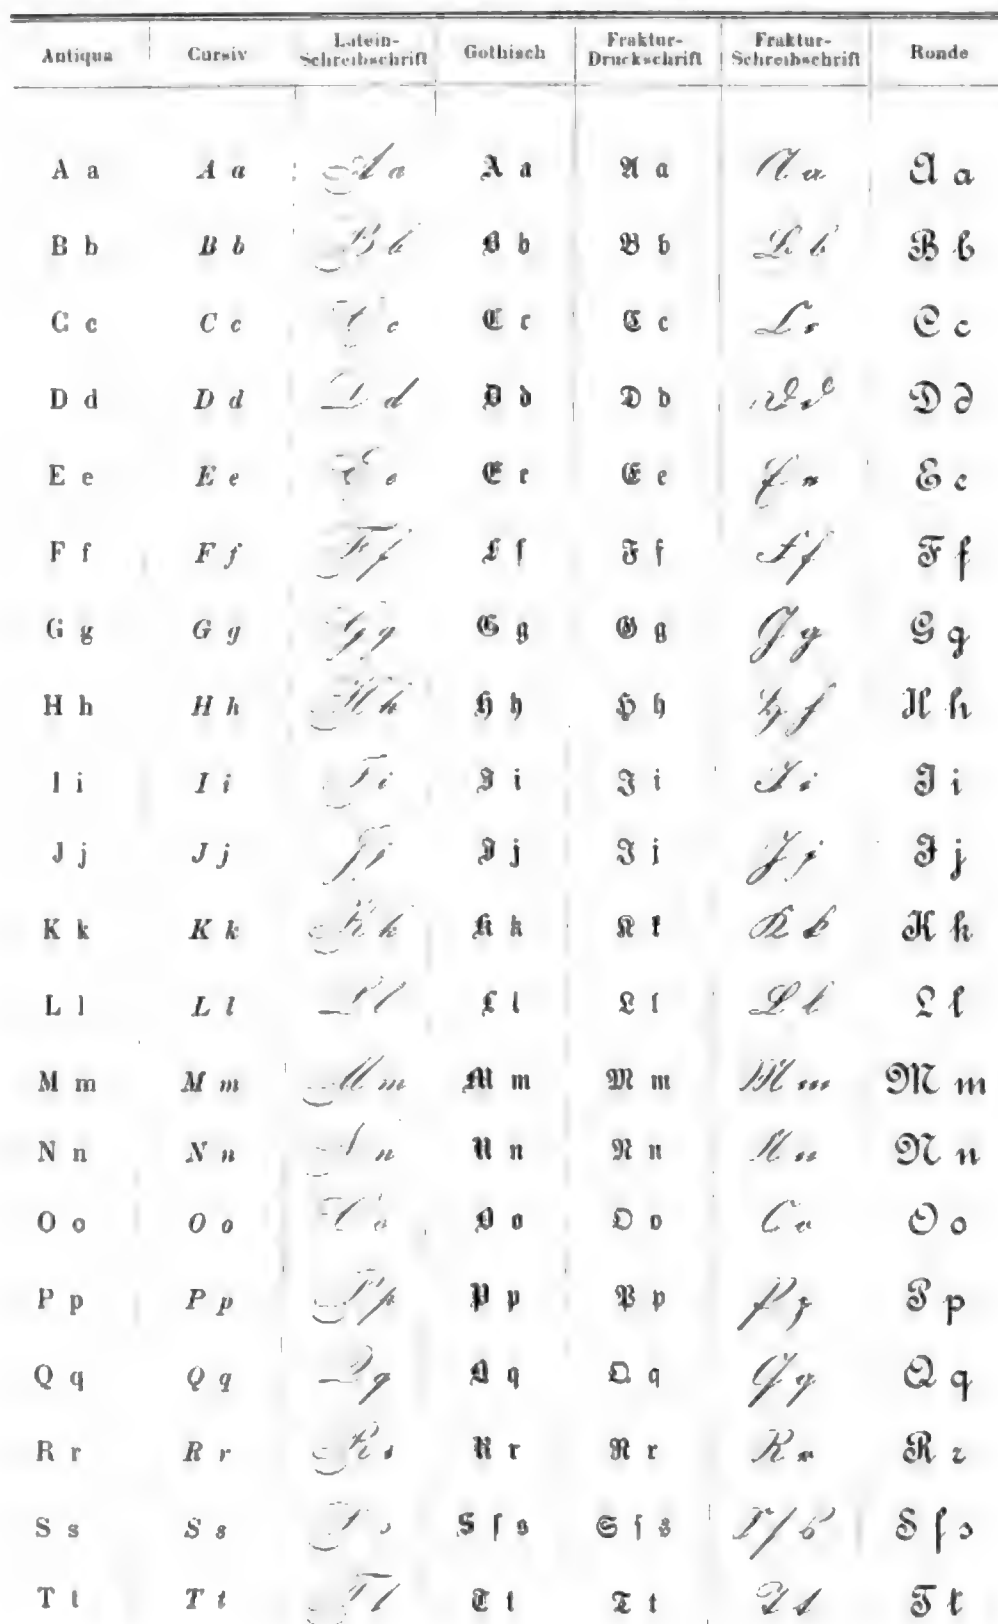 Antiqua Cursiv Latein-Schreibschrift Gothisch Fraktur-Druckschrift Fraktur-Schreibschrift Ronde
A a A a A a A a A a A a A a
B b B b B b B b B b B b B b
C c C c C c C c C c C c C c
D d D d D d D d D d D d D d
E e E e E e E e E e E e E e
F f F f F f F f F f F f F f
G g G g G g G g G g G g G g
H h H h H h H h H h H h H h
I i I i I i I i I i I i I i
J j J j J j J j J j J j J j
K k K k K k K k K k K k K k
L l L l L l L l L l L l L l
M m M m M m M m M m M m M m
N n N n N n N n N n N n N n
O o O o O o O o O o O o O o
P p P p P p P p P p P p P p
Q q Q q Q q Q q Q q Q q Q q
R r R r R r R r R r R r R r
S s S s S s S ſ s S ſ s S ſ s S ſ s
T t T t T t T t T t T t T t